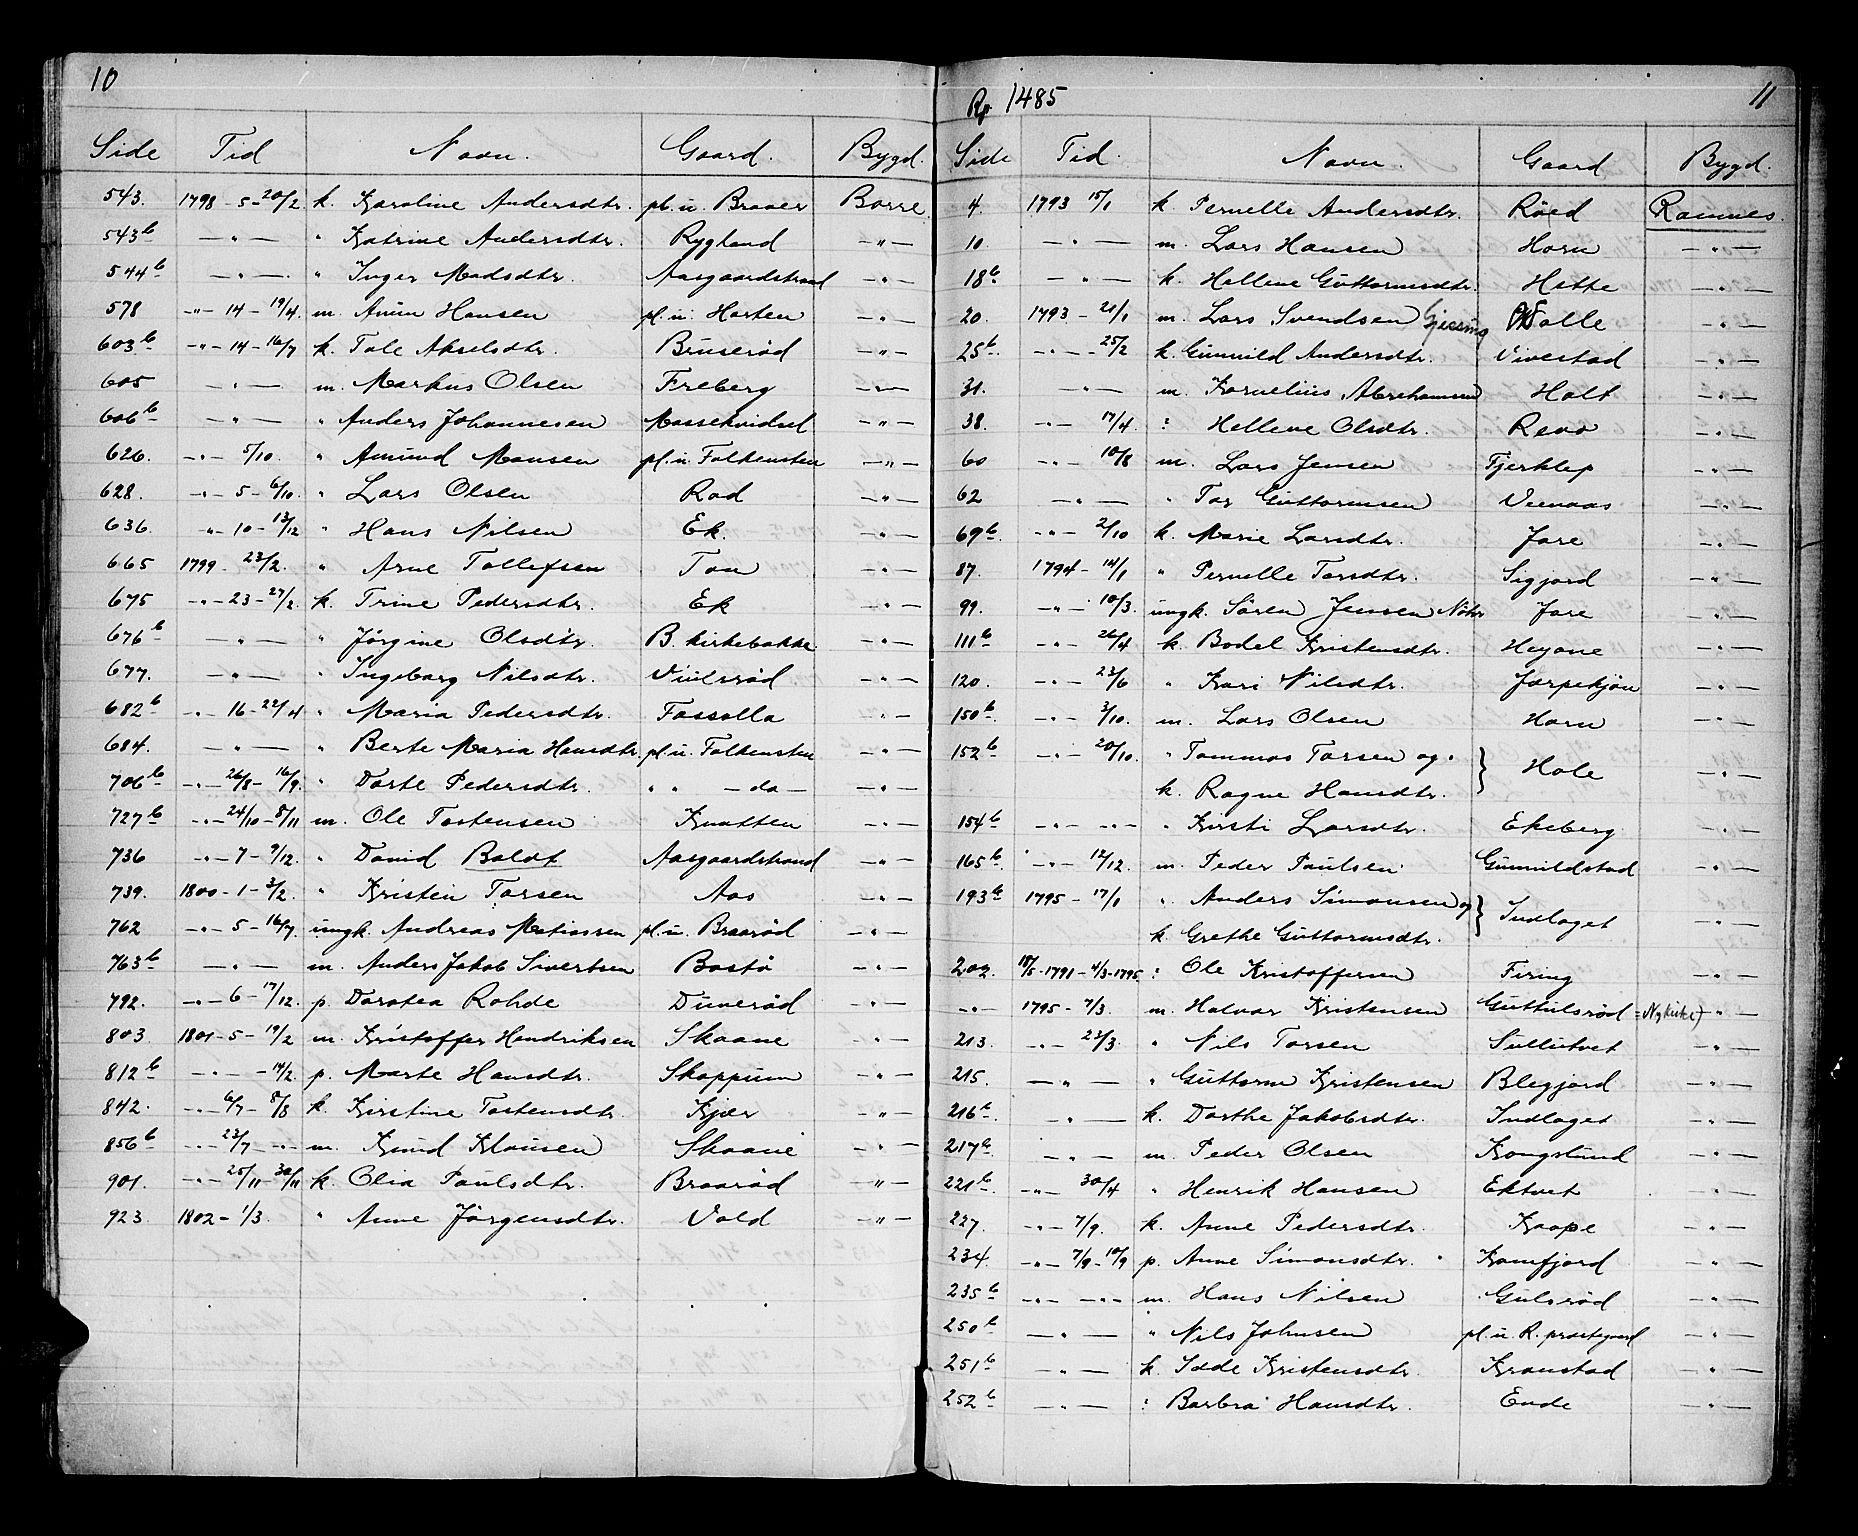 10
Side Tid Navn. Gaard. Bygd.
543. 1798-5-20/2 k. Karoline Andersdtr. pl. u. Braaer Borre.
543b — " — " Katrine Andersdtr. Rygland — " —
544b — " — " Inger Madsdtr. Aasgaardstrand — " —
578 — " — 14 - 19/4 m. Anun Hansen pl. u. Horten — " —
603b — " — 14 - 16/7 k. Tale Akselsdtr. Bruserød — " —
605 — " — m. Markus Olsen Freberg — " —
606b — " — " Anders Johannesen Massekvidsel — " —
626. — " — 5/10. " Amund Mansen pl. u. Falkensten — " —
628. — " — 5 - 6/10. " Lars Olsen Rad — " —
636. " — 10 - 13/12 " Hans Nilsen Ek. — " —
665 1799 - 23/2. " Arne Tollefsen Ton — " —
675 — " — 23 - 27/2. k. Trine Pedersdtr. Ek — " —
676b — " — " Jørgine Olsdtr. B. kirkebakke — " —
677. — " — " Ingeborg Nilsdtr. Viulsrød — " —
682b — " — 16 - 22/4 " Maria Pedersdtr. Fossolla — " —
684. — " — " Berte Maria Hansdtr. pl. u. Falkensten — " —
706b — " — 26/8 - 16/9. " Dorte Pedersdtr. " " — do — — " —
727b — " — 24/10 - 8/11 m. Ole Tostensen Knatten — " —
736 — " — 7 - 9/12. " David Baldt Aasgaardstrand — " —
739. 1800 - 1 - 3/2. " Kristen Torsen Aas — " —
762 — " — 5 - 16/7. ungk. Andreas Matiassen pl. u. Braarød — " —
763b — " — m. Anders Jakob Sivertsen Bastø — " —
792. — " — 6 - 17/12. p. Dorotea Rohde Duverød — " —
803 1801 - 5 - 19/2 m. Kristoffer Hendriksen Skaane — " —
812b — " — - 14/2. p. Marte Hansdtr. Skoppum — " —
842. — " — 6/7 - 8/8 k. Kirstine Tostensdtr. Kjær — " —
856b — " — 23/7 — " — m. Knud Klausen Skaane — " —
901. — " — 25/11 - 30/11 k. Olia Paulsdtr. Braarød — " —
923. 1802 - 1/3. " Anne Jørgensdtr. Vold — " —
Rp 1485 11
Side Tid. Navn. Gaard Bygd.
4. 1793 15/1 k. Pernelle Andersdtr. Røed Ramnes.
10. — " — m. Lars Hansen Horn — " —
18b — " — k. Hellene Guttormsdtr. Hette — " —
20. 1793 - 21/1 m. Lars Svendsen Gjessing Valle — " —
25b. — " — 25/2 k. Gunnild Andersdtr. Vivestad — " —
31. — " — m. Kornelius Abrahamsen Holt — " —
38. — " — 17/4 : Hellene Olsdtr. Revo — " —
60 — " — 10/8 m. Lars Jensen Fjerklep — " —
62 — " — " Tor Guttormsen Veenaas — " —
69b — " — 2/10 k. Marie Larsdtr. Jare — " —
87. 1794 - 14/1 " Pernelle Torsdtr. Sigjord — " —
99. — " — 10/3. ungk. Søren Jensen Jare — " —
111b — " — 26/4 k. Bodel Kristensdtr. Heyane — " —
120. — " — 23/6 " Kari Nilsdtr. Jærpekjøn — " —
150b — " — 3/10. m. Lars Olsen Horn — " —
152b — " — 20/10. " Tommas Torsen og } Hole — " —
k. Ragne Hansdtr.
154b — " — — " — " Kirsti Larsdtr. Ekeberg — " —
165b — " — 12/12. m. Peder Paulsen Gunnildstad — " —
193b 1795 - 17/1 " Anders Simonsen og } Indlaget — " —
k. Grethe Guttormsdtr.
202. 18/5-1791 - 4/3-1795. : Ole Kristoffersen Firing — " —
— " — 1795 - 7/3. m. Halvor Kristensen Guttulsrød = Nykirke) — " —
213. — " — 23/3. " Nils Torsen Sullutvet — " —
215. — " — " Guttorm Kristensen Blegjord — " —
216b. — " — k. Dorthe Jakobsdtr. Indlaget — " —
217b — " — m. Peder Olsen Kongslund — " —
221b — " — 30/4 " Henrik Hansen Ektvet — " —
227. — " — 7/9. k. Anne Pedersdtr. Kaape — " —
234. — " — 7/9 - 10/9 p. Anne Simonsdtr. Kamfjord — " —
235b — " — — " — m. Hans Nilsen Gulsrød — " —
250b — " — " Nils Johnsen pl. u. R. prestegaard — " —
251b — " — k. Idde Kristensdtr. Kranstad — " —
252b — " — : Barbra Hansdtr. Ende — " —